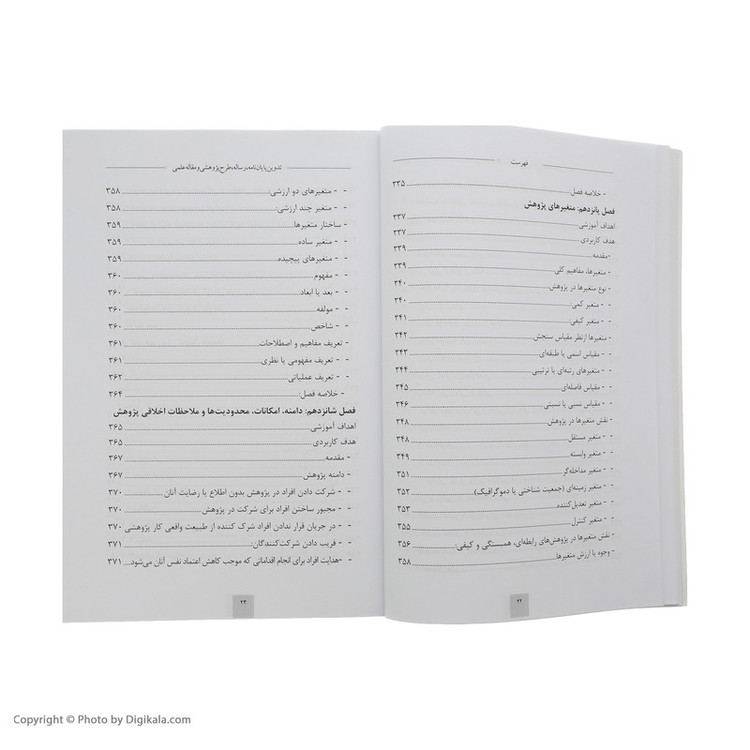 فهرست
- خلاصه فصل: ۳۳۵
فصل پانزدهم: متغیرهای پژوهش
اهداف آموزشی ۳۳۷
هدف کاربردی ۳۳۷
-مقدمه ۳۳۹
- متغیرها، مفاهیم کلی ۳۳۹
- نوع متغیرها در پژوهش ۳۴۰
- - متغیر کمی: ۳۴۰
- - متغیر کیفی: ۳۴۱
- متغیرها ازنظر مقیاس سنجش ۳۴۲
- - مقیاس اسمی یا طبقه‌ای ۳۴۳
- - متغیرهای رتبه‌ای یا ترتیبی ۳۴۴
- - مقیاس فاصله‌ای ۳۴۵
- - مقیاس نسبی یا نسبتی ۳۴۶
- نقش متغیرها در پژوهش ۳۴۸
- - متغیر مستقل ۳۴۸
- - متغیر وابسته ۳۴۹
- - متغیر مداخله‌گر ۳۵۱
- - متغیر زمینه‌ای (جمعیت شناختی یا دموگرافیک) ۳۵۲
- - متغیر تعدیل‌کننده ۳۵۳
- - متغیر کنترل ۳۵۵
- نقش متغیرها در پژوهش‌های رابطه‌ای، همبستگی و کیفی: ۳۵۶
- وجوه یا ارزش متغیرها ۳۵۸
۲۲
تدوین پایان‌نامه، رساله، طرح پژوهشی و مقاله علمی
- - متغیرهای دو ارزشی: ۳۵۸
- - متغیر چند ارزشی: ۳۵۸
- ساختار متغیرها ۳۵۹
- - متغیر ساده ۳۵۹
- - متغیرهای پیچیده ۳۵۹
- - مفهوم ۳۶۰
- - بعد یا ابعاد ۳۶۰
- - مولفه ۳۶۰
- - شاخص ۳۶۰
- تعریف مفاهیم و اصطلاحات ۳۶۱
- - تعریف مفهومی یا نظری ۳۶۱
- - تعریف عملیاتی ۳۶۲
- خلاصه فصل: ۳۶۴
فصل شانزدهم: دامنه، امکانات، محدودیت‌ها و ملاحظات اخلاقی پژوهش
اهداف آموزشی ۳۶۵
هدف کاربردی ۳۶۵
- مقدمه ۳۶۷
- دامنه پژوهش ۳۶۷
- - شرکت دادن افراد در پژوهش بدون اطلاع یا رضایت آنان ۳۷۰
- - مجبور ساختن افراد برای شرکت در پژوهش ۳۷۰
- - در جریان قرار ندادن افراد شرک کننده از طبیعت واقعی کار پژوهشی ۳۷۰
- - فریب دادن شرکت‌کنندگان: ۳۷۱
- -هدایت افراد برای انجام اقداماتی که موجب کاهش اعتماد نفس آنان می‌شود ۳۷۱
۲۳
Copyright © Photo by Digikala.com